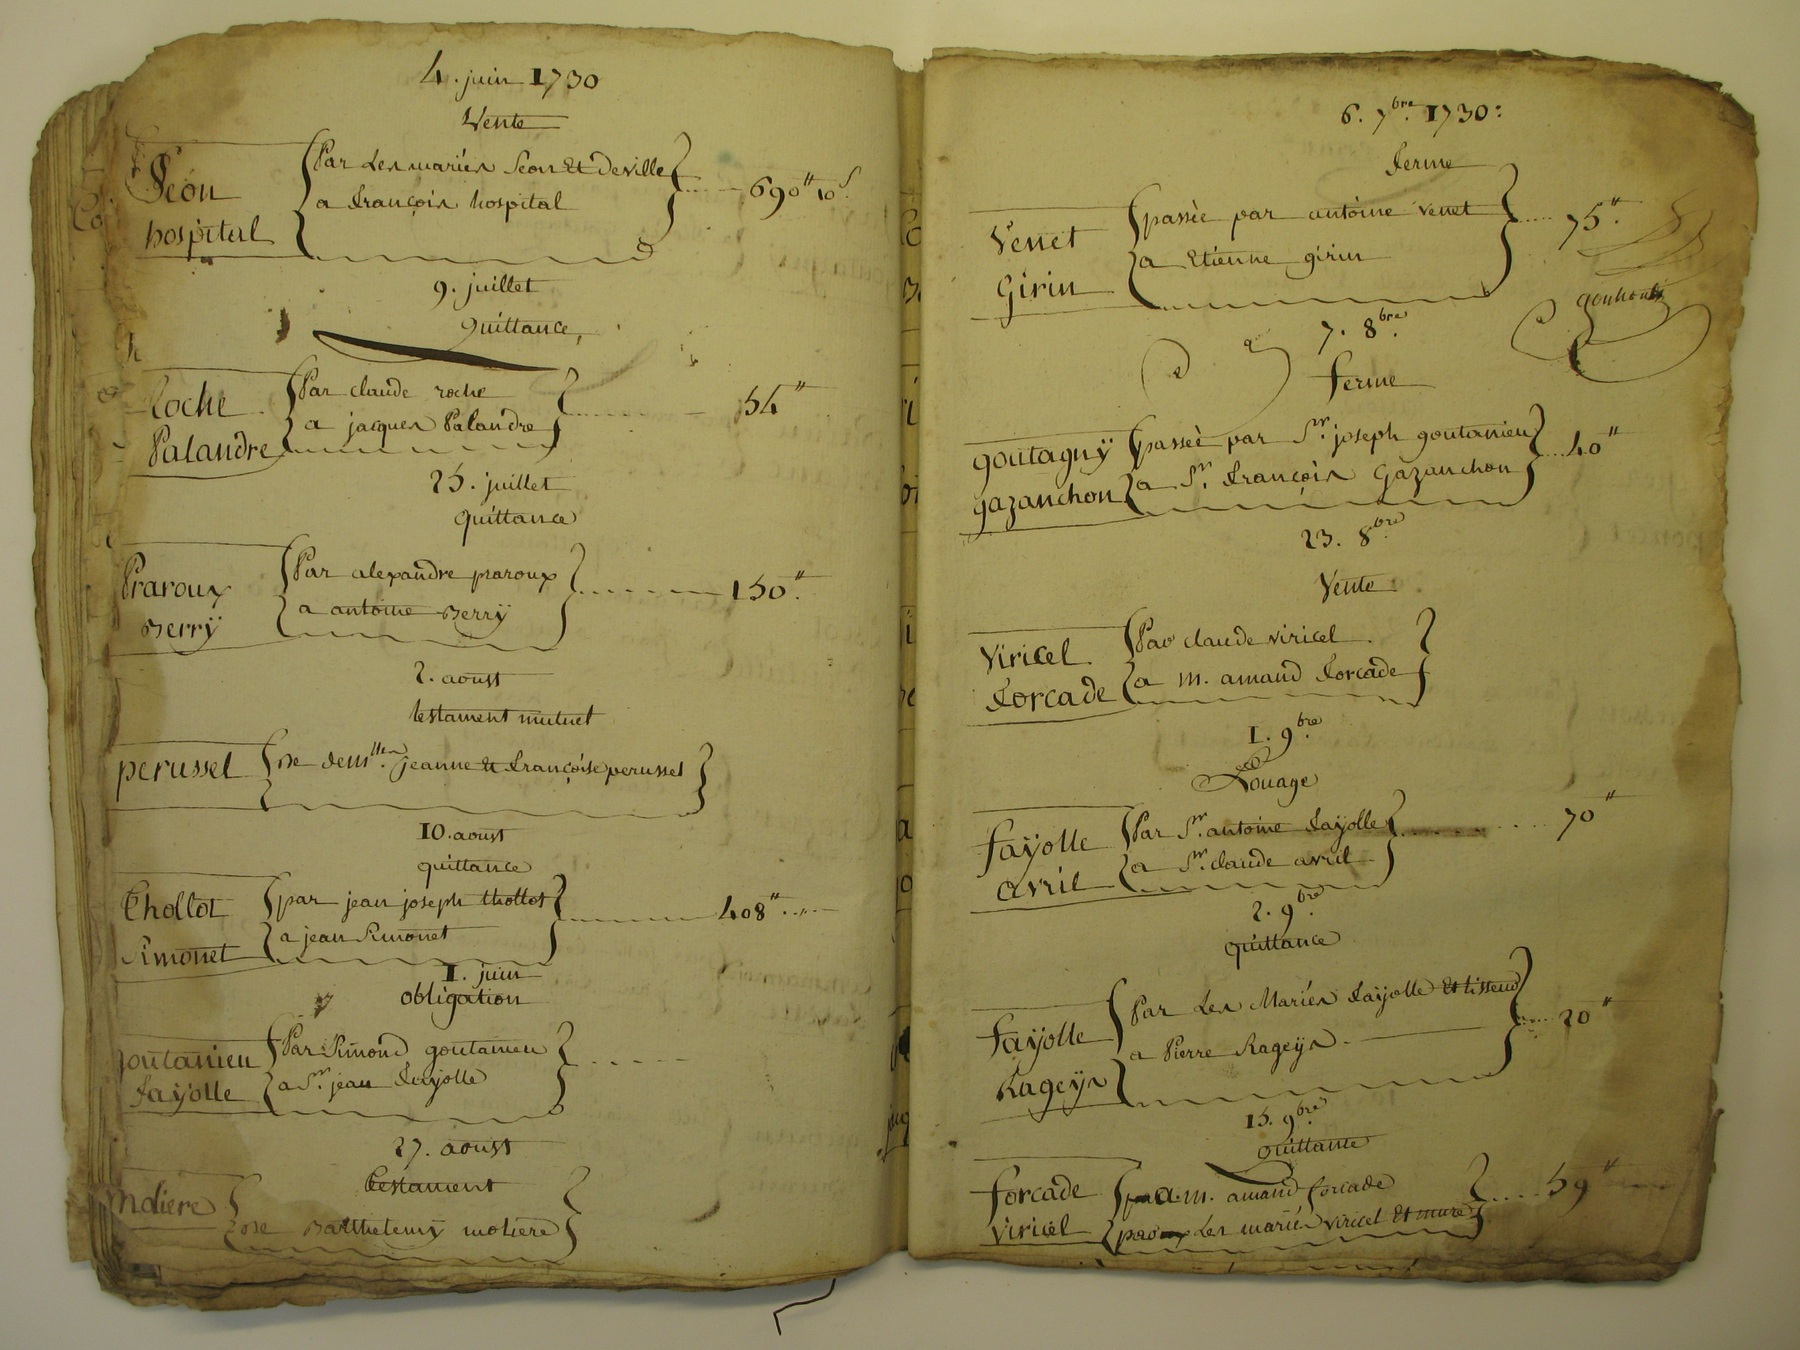 4. juin 1730
Vente
Séon
hospital
Par Les mariés Séon Et deville
a françois hospital
690" 10s.
9. juillet
quittance
Roche
Palandre
Par claude roche
a jacques Palandre
54"
25. juillet
quittance
Praroux
Berrÿ
Par alexandre praroux
a antoine Berrÿ
150".
2. aoust
testament mutuel
perussel
De demlles. jeanne Et françoise perussel
10. aoust
quittance
Thollot
Simonet
par jean joseph thollot
a jean Simonet
408"
1. juin
obligation
goutanieu
fayolle
Par Simond goutanieu
a Sr. jean fayolle
27. aoust
testament
moliere
De Barthelemÿ moliere
6. 7bre. 1730:
ferme
Venet
Girin
passée par antoine Venet
a Etienne girin
75".
7. 8bre.
ferme
goutagnÿ
gazanchon
passée par Sr. joseph goutanieu
a Sr. françois Gazanchon
40"
23. 8bre.
Vente
Viricel
forcade
Par claude viricel
a m. amand forcade
1. 9bre.
Louage
faÿolle
avril
Par Sr. antoine faÿolle
a Sr. claude avril
70"
2. 9bre.
quittance
faÿolle
Rageÿs
Par Les Mariés faÿolle Et tisseur
a Pierre Rageÿs
20"
15. 9bre.
quittance
forcade
viricel
a m. amand forcade
par Les mariés viricel Et mure
59"